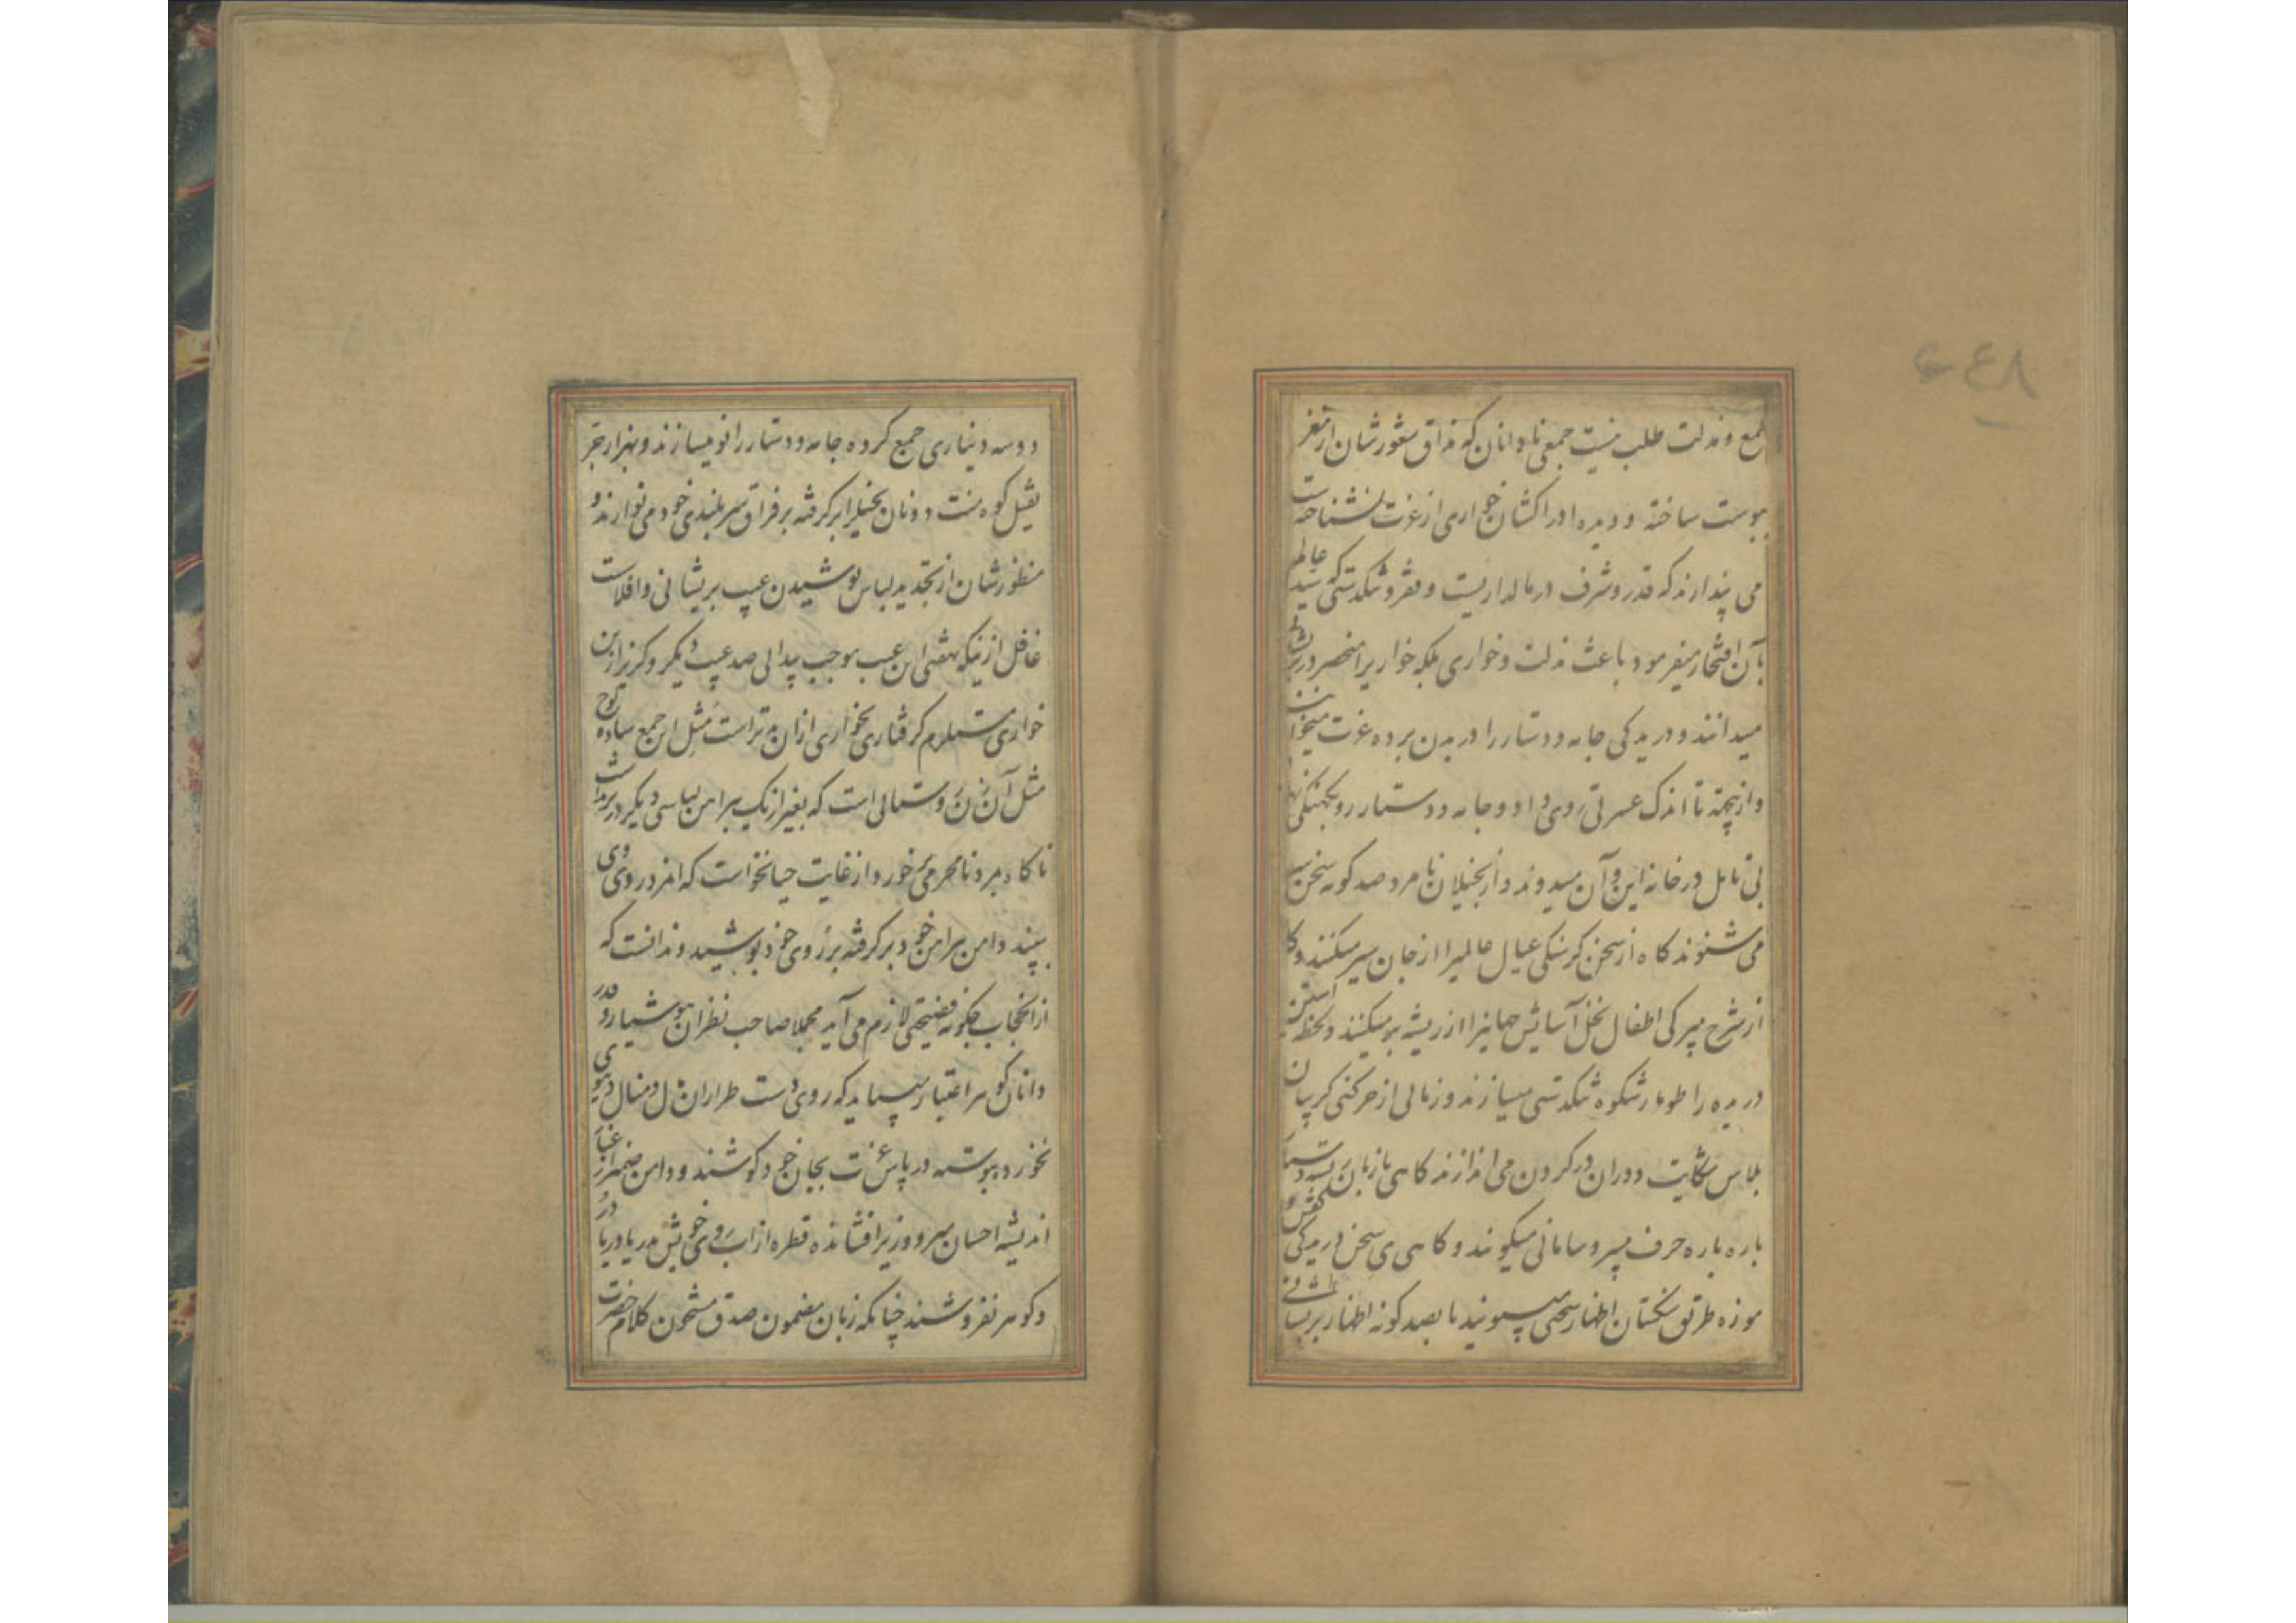 طمع و مذلت طلب نیست جمعی نادانان که مذاق شعورشان از مغز
بپوست ساخته و دیده ادراکشان خواری از عزت نشناخته است
می پندارند که قدر و شرف در مالداریست و فقر و شکستگی که سید عالم
بآن افتخار میفرمود باعث مذلت و خواری بلکه خواریرا منحصر در
میدانند و دریدگی جامه و دستار را دریدن پرده عزت میخوانند
و ازینجهة تا اندک عسرتی روی داد و جامه و دستار رو بکهنگی نهاد
بی تامل در خانه این و آن میدوند و از بخیلان نامرد صد گونه سخن
می شنوند گاه از سخن گرسنگی عیال عالمیرا از جان سیر میکنند و گاه
از شرح اطفال نخل آسایش جهانیرا از ریشه بر میکنند و لحظه آستین
دریده را طومار شکوه تنگدستی میسازند و زمانی از چرکنی گریبان
پلاس شکایت دوران در گردن می اندازند گاهی با زبان دستار
پاره پاره حرف بیسر و سامانی میگویند و گاهی پی سخن دریدگی کفش و
موزه طریق اظهار سختی میپویند تا بصد گونه اظهار پریشانی
دو سه دیناری جمع کرده جامه و دستار را نو میسازند و بهزار جر
ثقیل کوه منت دونان بخیلرا بر گرفته بر فرق سربلندی خود می اندازند و
منظورشان از تجدید لباس پوشیدن عیب پریشانی و افلاس است
غافل ازینکه نهفتن این عیب موجب پیدائی صد عیب دیگر و گریز ازین
خواری مستلزم گرفتاری بخواری ازان بدتر است مثل این جمع ساده لوح
مثل آن زن روستائی است که بغیر از یک پیراهن لباسی دیگر در بر نداشت
ناگاه مرد نامحرمی بر خورد و از غایت حیا نخواست که مرد روی وی
ببیند دامن پیراهن خود بر گرفته بر روی خود پوشید و ندانست که
ازان حجاب چگونه فضیحتی لازم می آید مجملا صاحب نظران هوشیار و قدر
دانان گوهر اعتبار میباید که روی دست طراران مال و منال دنیوی
نخورده پیوسته در پاس عزت بجان خود کوشند و دامن ضمیر از غبار
اندیشه احسان میر و وزیر افشانده قطره از آب روی خویش بدریا دریا در
و گوهر نفروشند چنانکه زبان مضمون صدق مشحون کلام حضرت